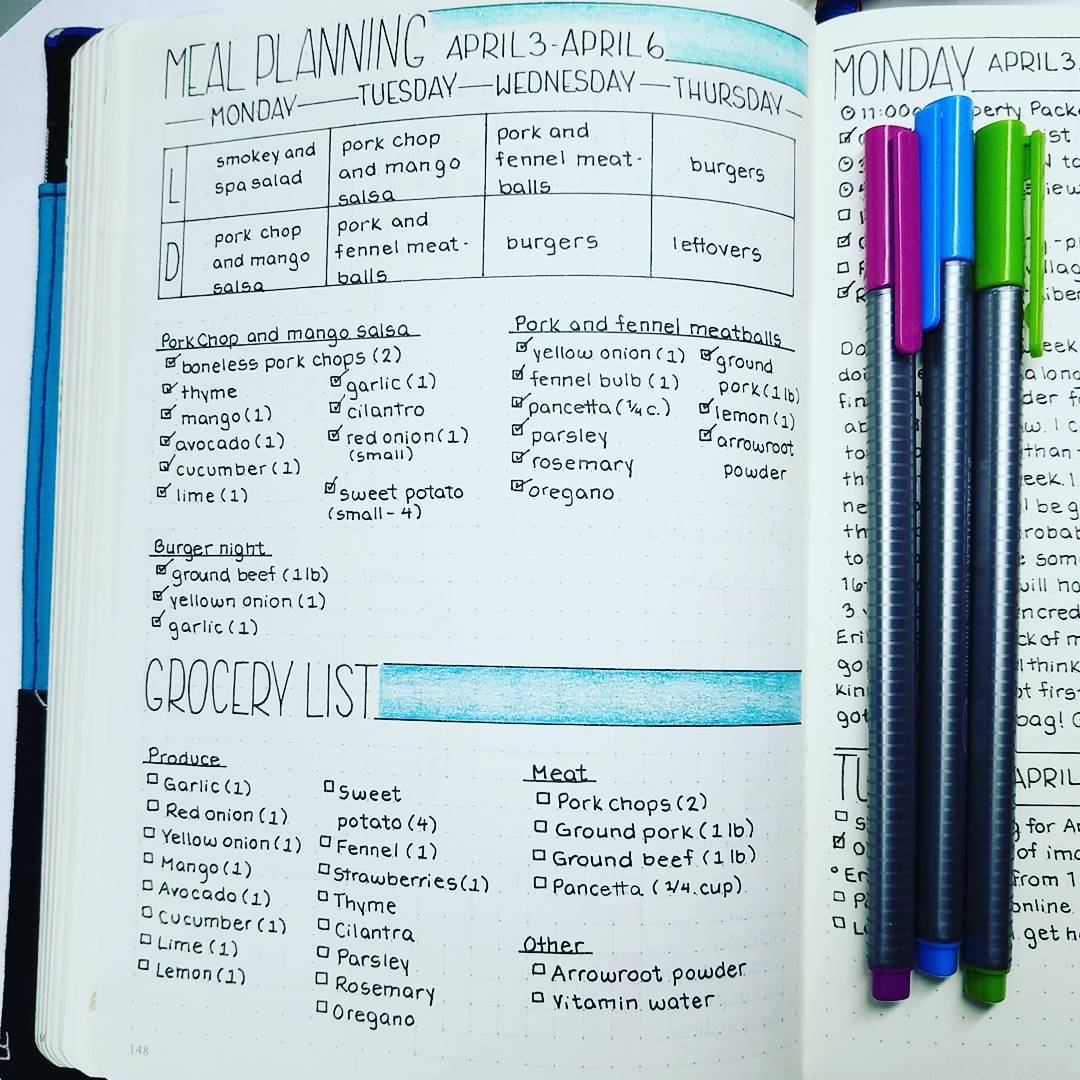 MEAL PLANNING APRIL 3 - APRIL 6
MONDAY TUESDAY WEDNESDAY THURSDAY
L
smokey and
spa salad
pork chop
and mango
salsa
pork and
fennel meat-
balls
burgers
D
pork chop
and mango
salsa
pork and
fennel meat-
balls
burgers
leftovers
Pork Chop and mango salsa
boneless pork chops (2)
thyme
mango (1)
avocado (1)
cucumber (1)
lime (1)
garlic (1)
cilantro
red onion (1)
(small)
sweet potato
(small - 4)
Pork and fennel meatballs
yellow onion (1)
fennel bulb (1)
pancetta (1/4 c.)
parsley
rosemary
oregano
ground
pork (1 lb)
lemon (1)
arrowroot
powder
Burger night
ground beef (1 lb)
yellown onion (1)
garlic (1)
GROCERY LIST
Produce
Garlic (1)
Red onion (1)
Yellow onion (1)
Mango (1)
Avocado (1)
Cucumber (1)
Lime (1)
Lemon (1)
Sweet
potato (4)
Fennel (1)
Strawberries (1)
Thyme
Cilantra
Parsley
Rosemary
Oregano
Meat
Pork chops (2)
Ground pork (1 lb)
Ground beef (1 lb)
Pancetta (1/4 cup)
Other
Arrowroot powder
Vitamin water
148
MONDAY APRIL 3
11:00
to
a long
than
I think
bag!
APRIL
for
of
from
online
get